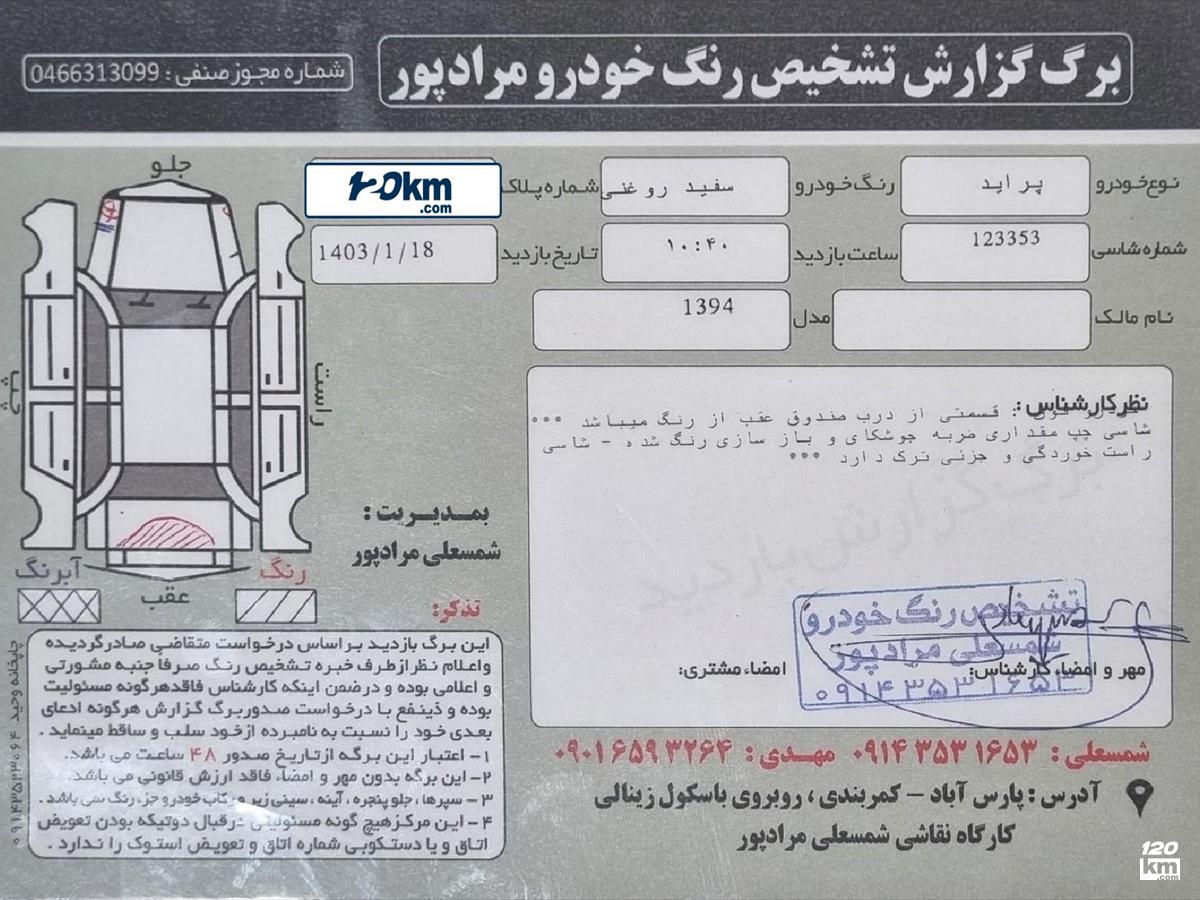 برگ گزارش تشخیص رنگ خودرو مرادپور
شماره مجوز صنفی : 0466313099
نوع خودرو پراید رنگ خودرو سفید روغنی شماره پلاک ۱۲۰km.com
شماره شاسی 123353 ساعت بازدید ۱۰:۴۰ تاریخ بازدید 1403/1/18
نام مالک مدل 1394
جلو
چپ
راست
عقب
آبرنگ
رنگ
نظر کارشناس :
: قسمتی از درب صندوق عقب از رنگ میباشد ***
شاسی چپ مقداری ضربه جوشکای و باز سازی رنگ شده - شاسی
راست خوردگی و جزئی ترک دارد ***
برگ گزارش بازدید
بمدیریت :
شمسعلی مرادپور
تذکر:
این برگ بازدید بر اساس درخواست متقاضی صادر گردیده
و اعلام نظر از طرف خبره تشخیص رنگ صرفا جنبه مشورتی
و اعلامی بوده و در ضمن اینکه کارشناس فاقد هرگونه مسئولیت
بوده و ذینفع با درخواست صدور برگ گزارش هرگونه ادعای
بعدی خود را نسبت به نامبرده از خود سلب و ساقط مینماید .
۱- اعتبار این برگه از تاریخ صدور ۴۸ ساعت می باشد.
۲- این برگه بدون مهر و امضاء فاقد ارزش قانونی می باشد.
۳- سپرها ، جلو پنجره ، آینه ، سینی زیر و رکاب خودرو جز، رنگ نمی باشد .
۴- این مرکز هیچ گونه مسئولیتی در قبال دوتیکه بودن تعویض
اتاق و یا دستکوبی شماره اتاق و تعویض استوک را ندارد .
چاپخانه وحید ۰۹۱۴۳۵۲۳۰۶۴
مهر و امضاء کارشناس:
امضاء مشتری:
تشخیص رنگ خودرو
شمسعلی مرادپور
۰۹۱۴۳۵۳۱۶۵۳
شمسعلی : ۰۹۱۴ ۳۵۳ ۱۶۵۳ مهدی : ۰۹۰۱ ۶۵۹ ۳۲۶۴
آدرس : پارس آباد - کمربندی ، روبروی باسکول زینالی
کارگاه نقاشی شمسعلی مرادپور
120km.com